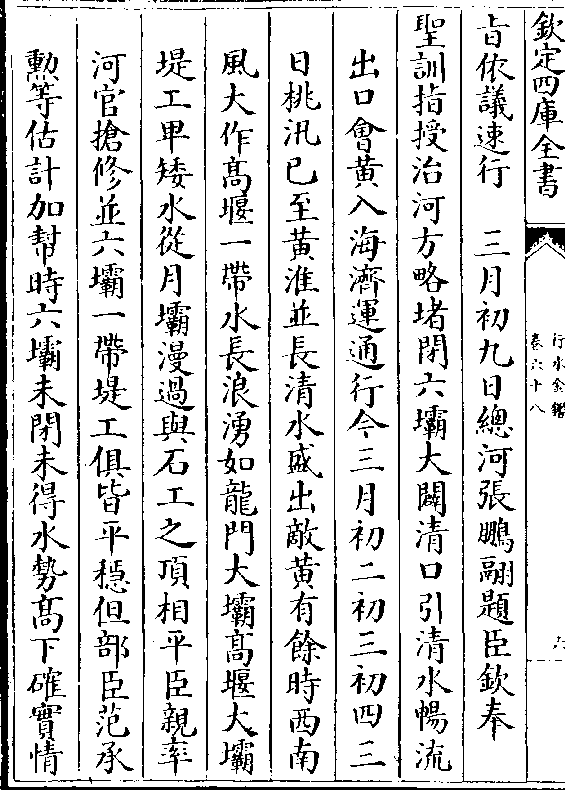 欽定四庫全書
行水金鑑
卷六十八
六
旨依議速行　三月初九日總河張鵬翮題臣欽奉
聖訓指授治河方略堵閉六壩大闢清口引清水暢流
出口會黃入海濟運通行今三月初二初三初四三
日桃汛已至黃淮並長清水盛出敵黃有餘時西南
風大作髙堰一帶水長浪湧如龍門大壩髙堰大壩
堤工卑矮水從月壩漫過與石工之頂相平臣親率
河官搶修並六壩一帶堤工俱皆平穩但部臣范承
勲等估計加幫時六壩未閉未得水勢髙下確實情